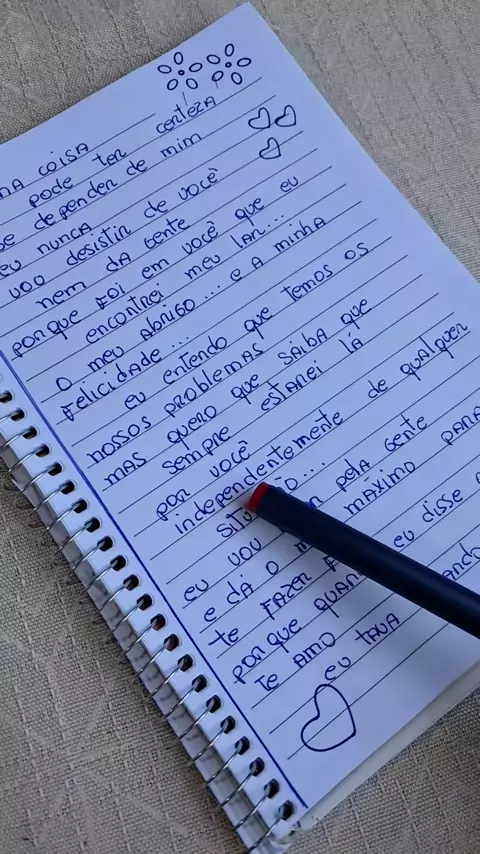 coisa
pode ter certeza
depender de mim
eu nunca
vou desistir de você
nem da gente
porque foi em você que eu
encontrei meu lar...
o meu abrigo... e a minha
felicidade...
eu entendo que temos os
nossos problemas
mas quero que saiba que
sempre estarei lá
por você
independentemente de qualquer
eu vou pela gente
e dá o máximo para
te fazer
porque eu disse
te amo
eu tava